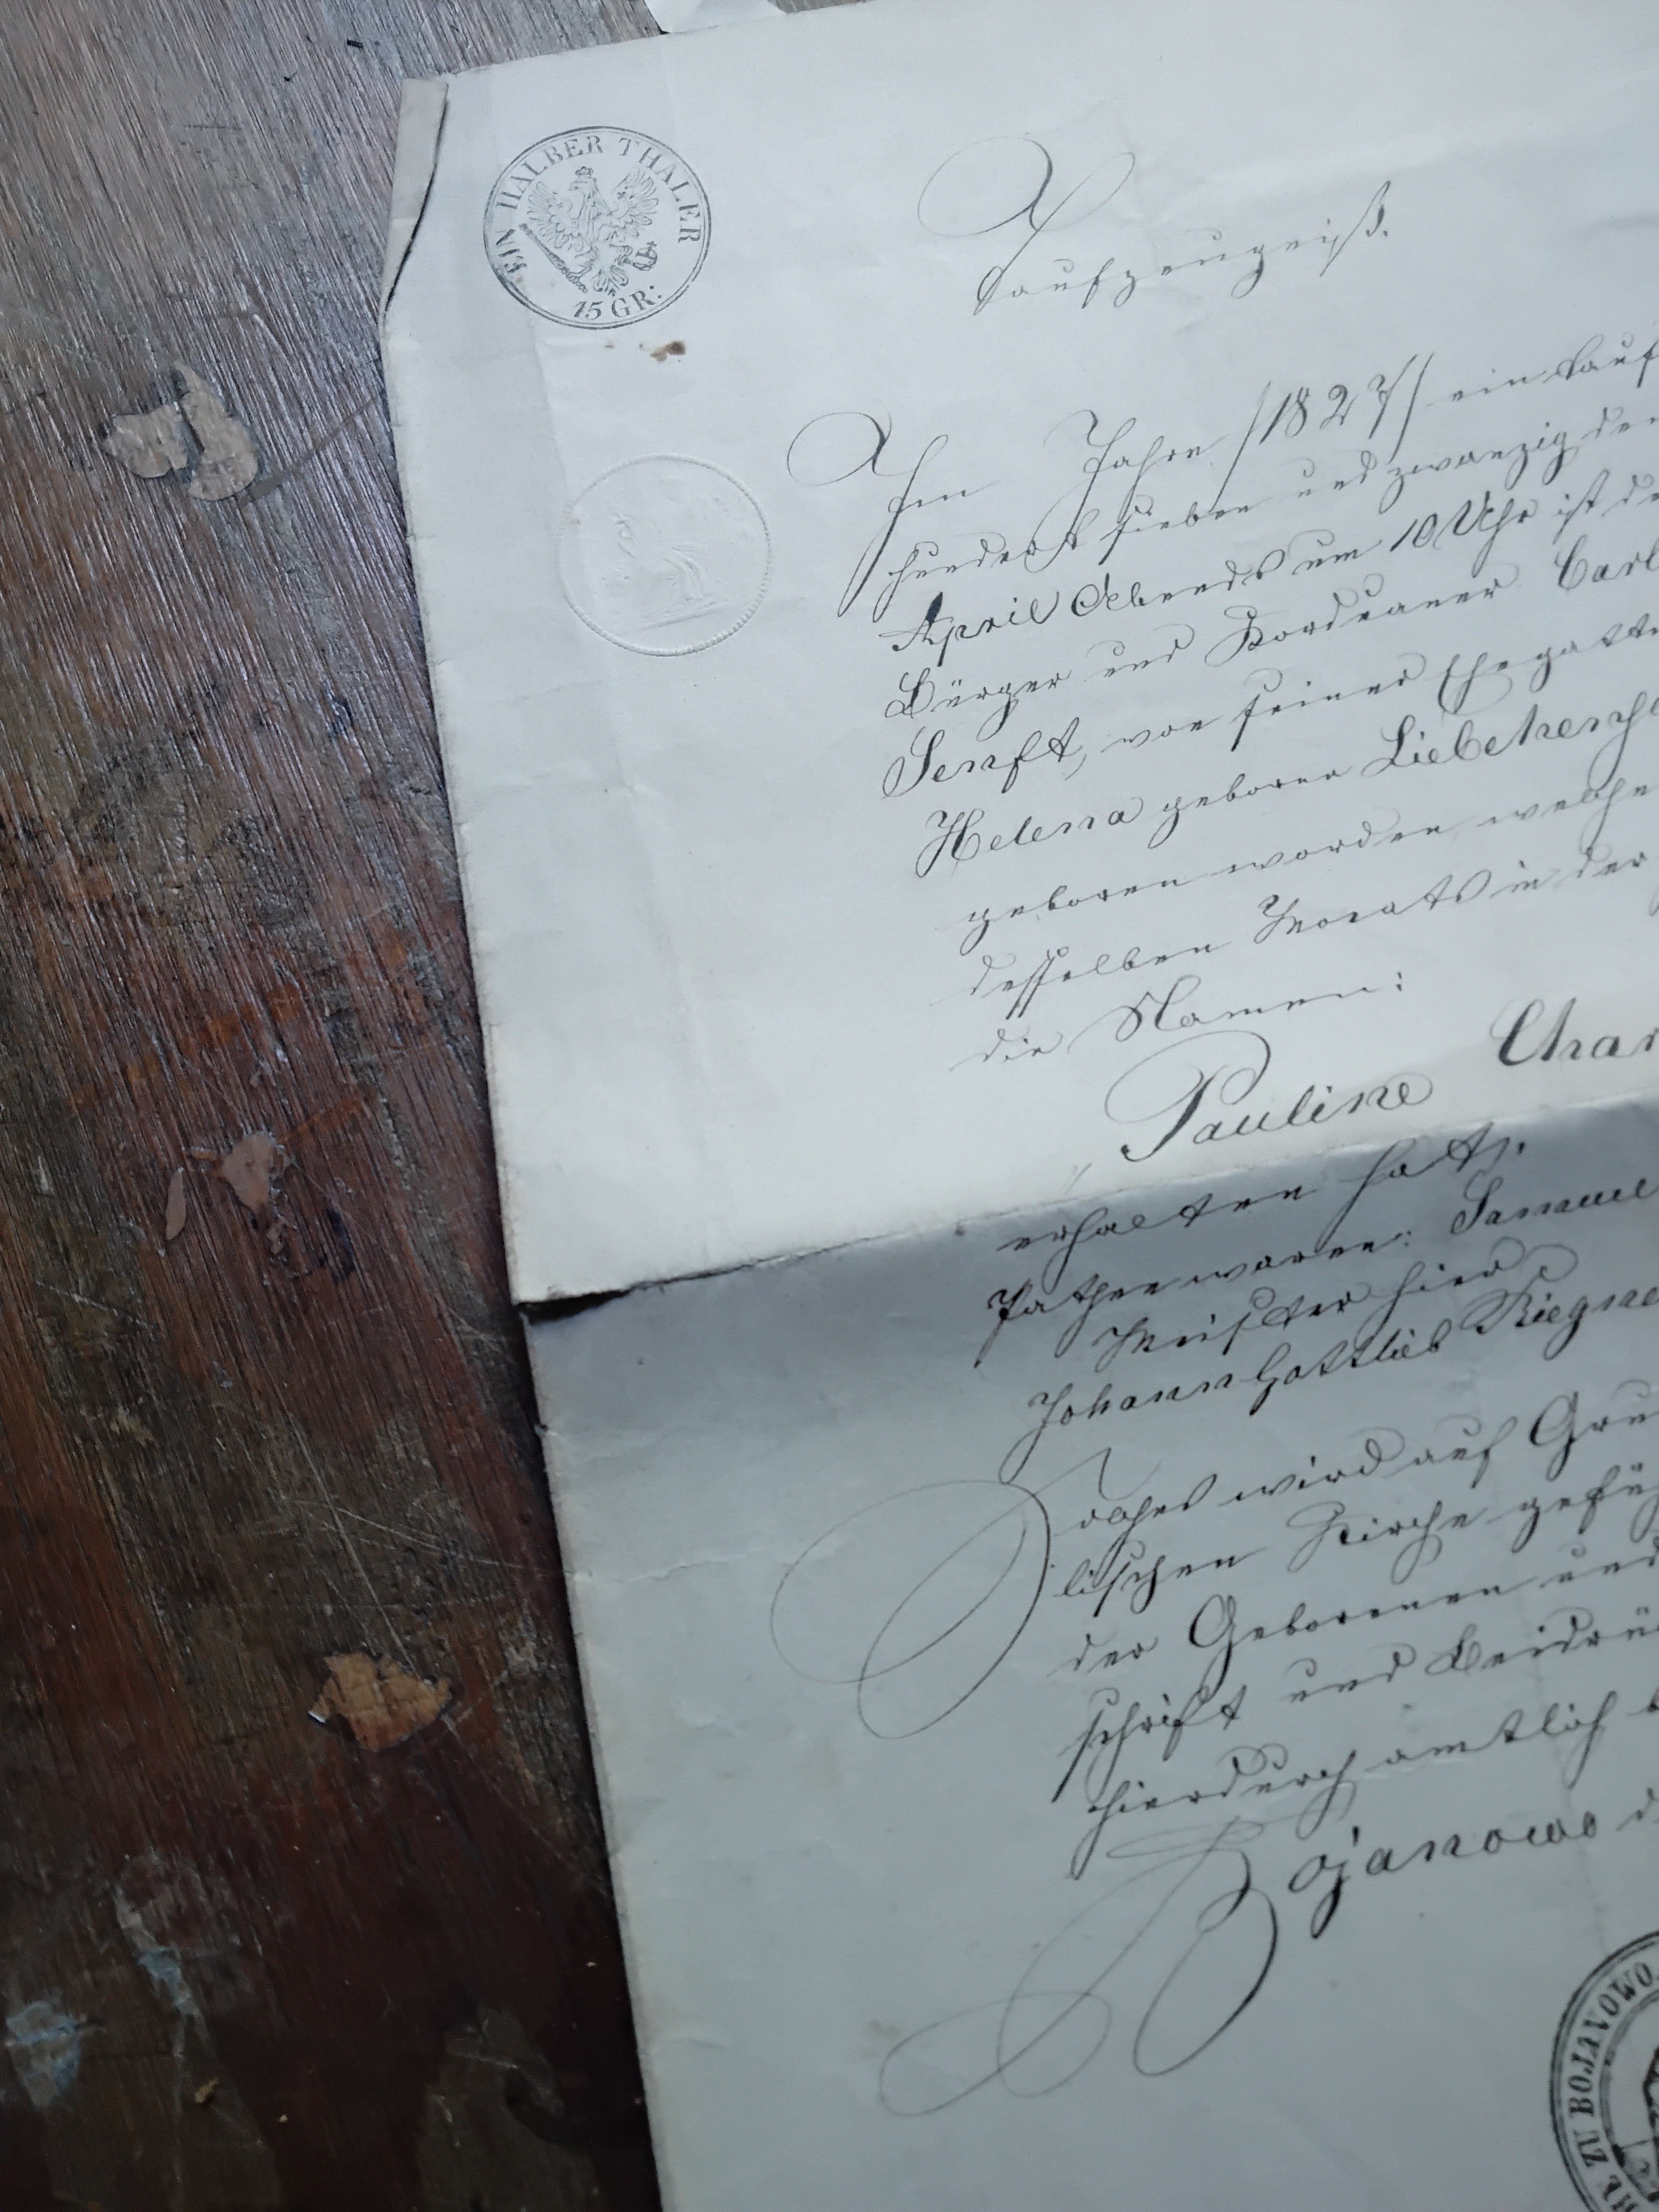 EIN HALBER THALER
15 GR:
Taufzeugniß.
Im Jahre /1827/ ein tauf
hundert sieben und zwanzig den
April Abends um 10 Uhr ist de
Bürger und Korduaner Carl
Senft, von seiner Ehegatt
Helena geborne
geboren worden welche
desselben Monats in der
die Namen:
Pauline Char
erhalten hat.
Pathen waren: Samuel
Meister hier
Johann Gottlieb Riegne
Solches wird auf Gru
lischen Kirche gefüh
der Geborenen und
schrift und Beidrü
hierdurch amtlich b
Bojanowo d
ZU BOJANOWO